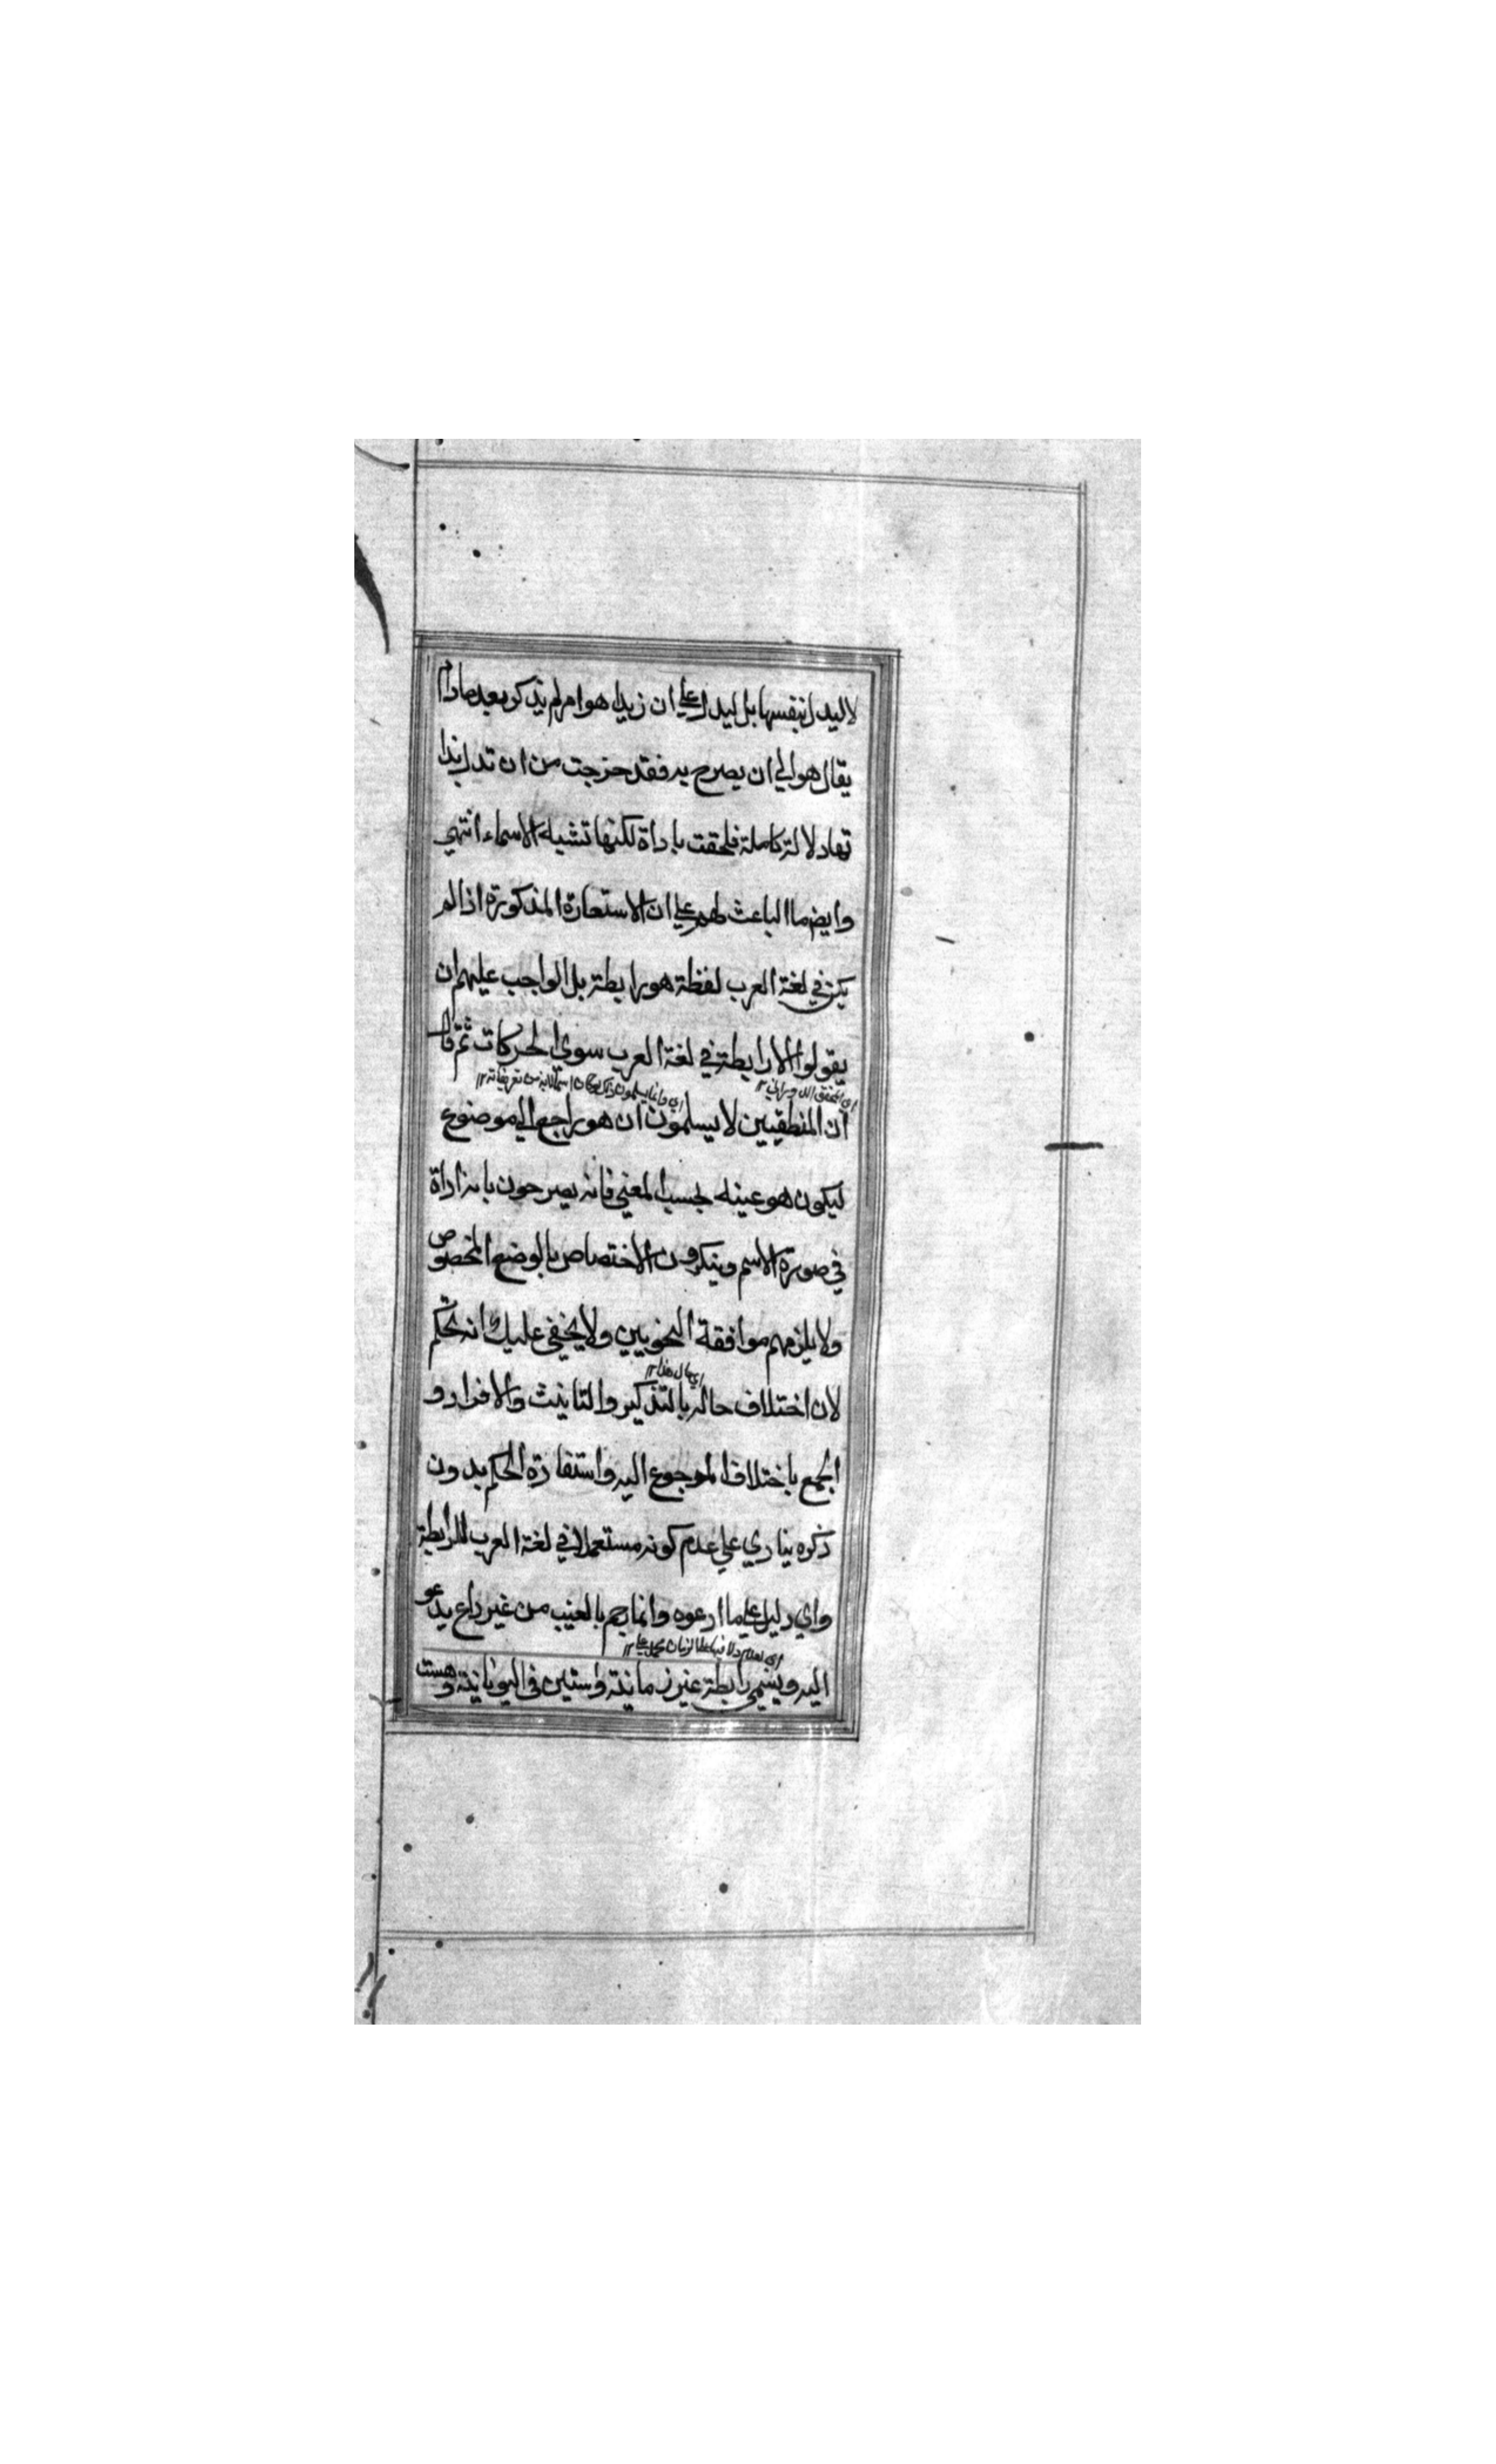 لا ليدل بنفسها بل ليدل علي ان زيدا هو امر لم يذكر بعد مادام
يقال هو الي ان يصرح به فقد خرجت من ان تدل بذا
تها دلالة كاملة فلحقت باداة لكنها تشبه الاسماء انتهي
وايضا ما الباعث لهم علي ان الاستعارة المذكورة اذا لم
يكن في لغة العرب لفظة هو رابطة بل الواجب عليهم ان
يقولوا لا رابطة في لغة العرب سوي الحركات ثم قال
اي المحقق الدواني ١٢
ان المنطقيين لا يسلمون ان هو راجع الي موضوع
ليكون هو عينه بحسب المعني فانه يصرحون بانه اداة
في صورة الاسم وينكرون الاختصاص بالوضع المخصوص
ولا يلزمهم موافقة النحويين ولا يخفي عليك انه تحكم
اي حال هذا ١٢
لان اختلاف حاله بالتذكير والتانيث والافراد و
الجمع باختلاف المرجوع اليه واستفادة الحكم بدون
ذكره ينادي علي عدم كونه مستعملا في لغة العرب للرابطة
واي دليل علي ما ادعوه وانما رجم بالغيب من غير داع يدعو
اليه ويسمي رابطة غير زمانية واستين في اليونانية وهست